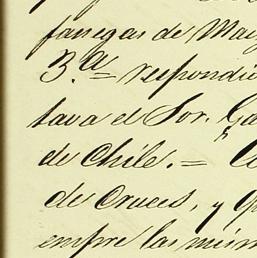 fanegas de May
3.a = respondió
tava el Sor. Ga
de Chile. =
de Cruces, y q
empre las mism